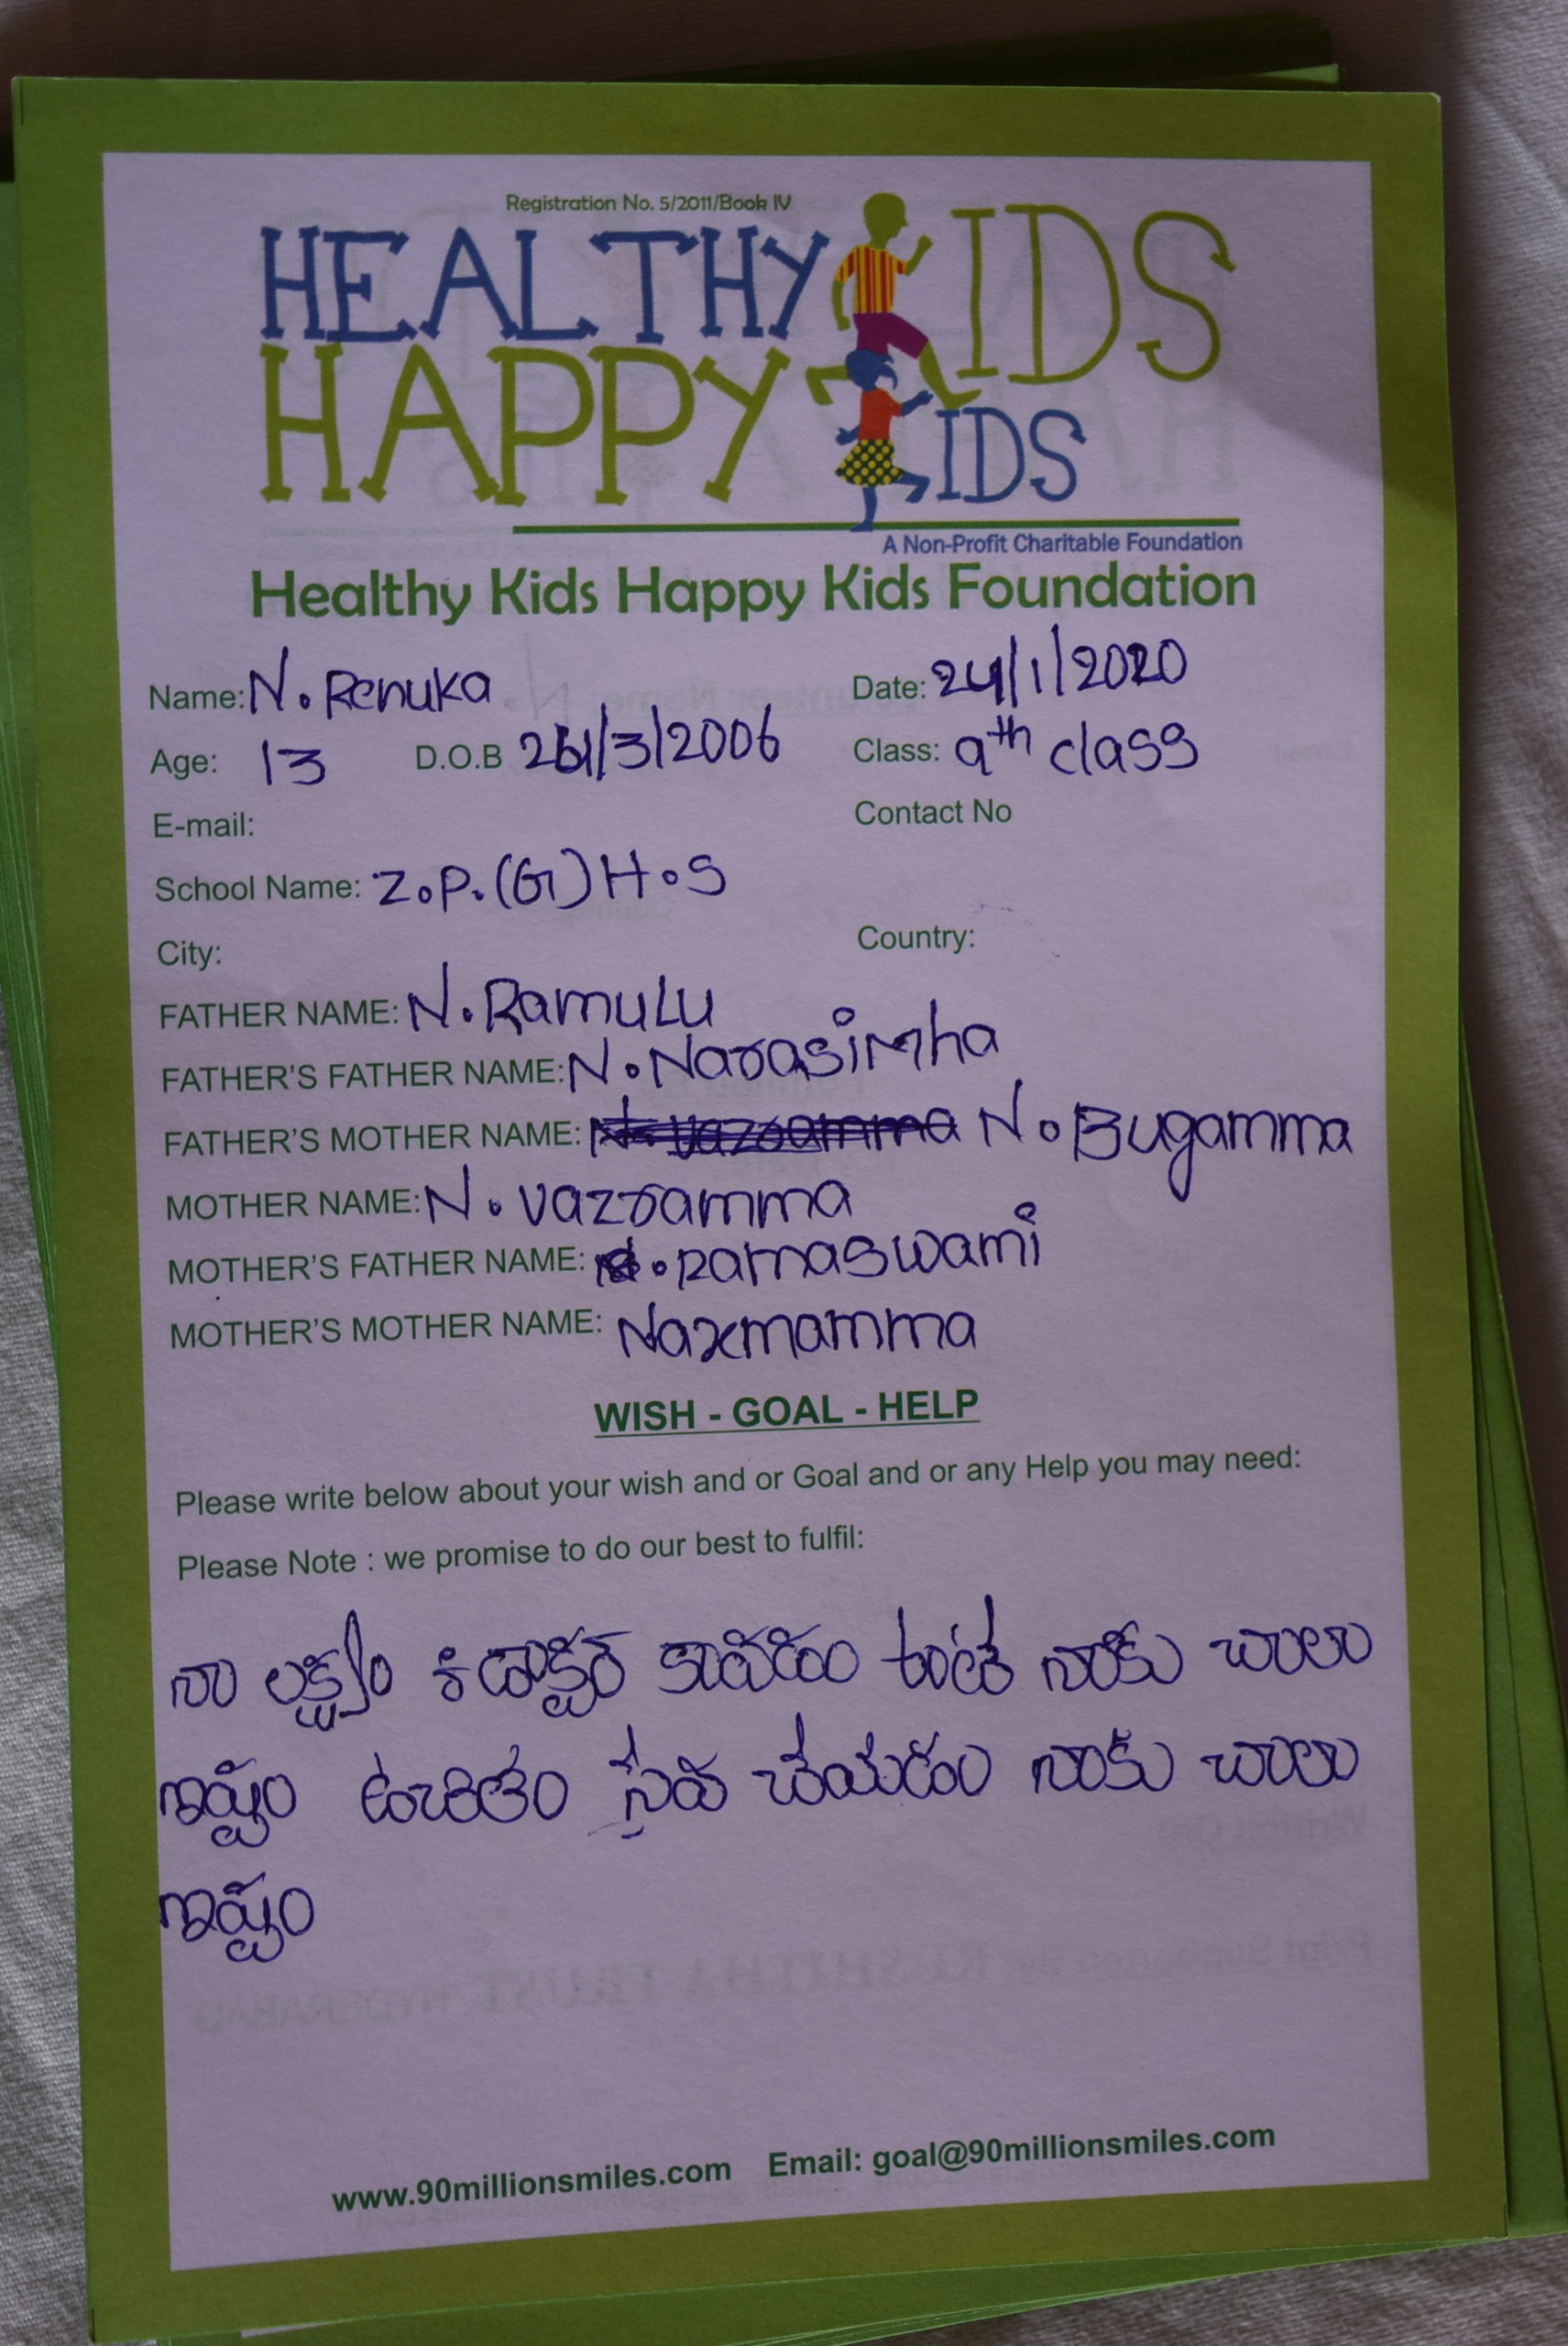 Registration No. 5/2011/Book IV
HEALTHY KIDS
HAPPY KIDS
A Non-Profit Charitable Foundation
Healthy Kids Happy Kids Foundation
Name: N. Renuka Date: 24/1/2020
Age: 13 D.O.B /3/2006 Class: 9th class
E-mail: Contact No
School Name: Z.P.(G)H.S
City: Country:
FATHER NAME: N. Ramulu
FATHER'S FATHER NAME: N. Narasimha
FATHER'S MOTHER NAME: N. Bugamma
MOTHER NAME: N. vazramma
MOTHER'S FATHER NAME: ramaswami
MOTHER'S MOTHER NAME: Naxmamma
WISH - GOAL - HELP
Please write below about your wish and or Goal and or any Help you may need:
Please Note : we promise to do our best to fulfil:
నా లక్ష్యం డాక్టర్ కావడం అంటే నాకు చాలు
ఇష్టం ఉచితం సేవ చేయడం నాకు చాలు
ఇష్టం
www.90millionsmiles.com Email: goal@90millionsmiles.com